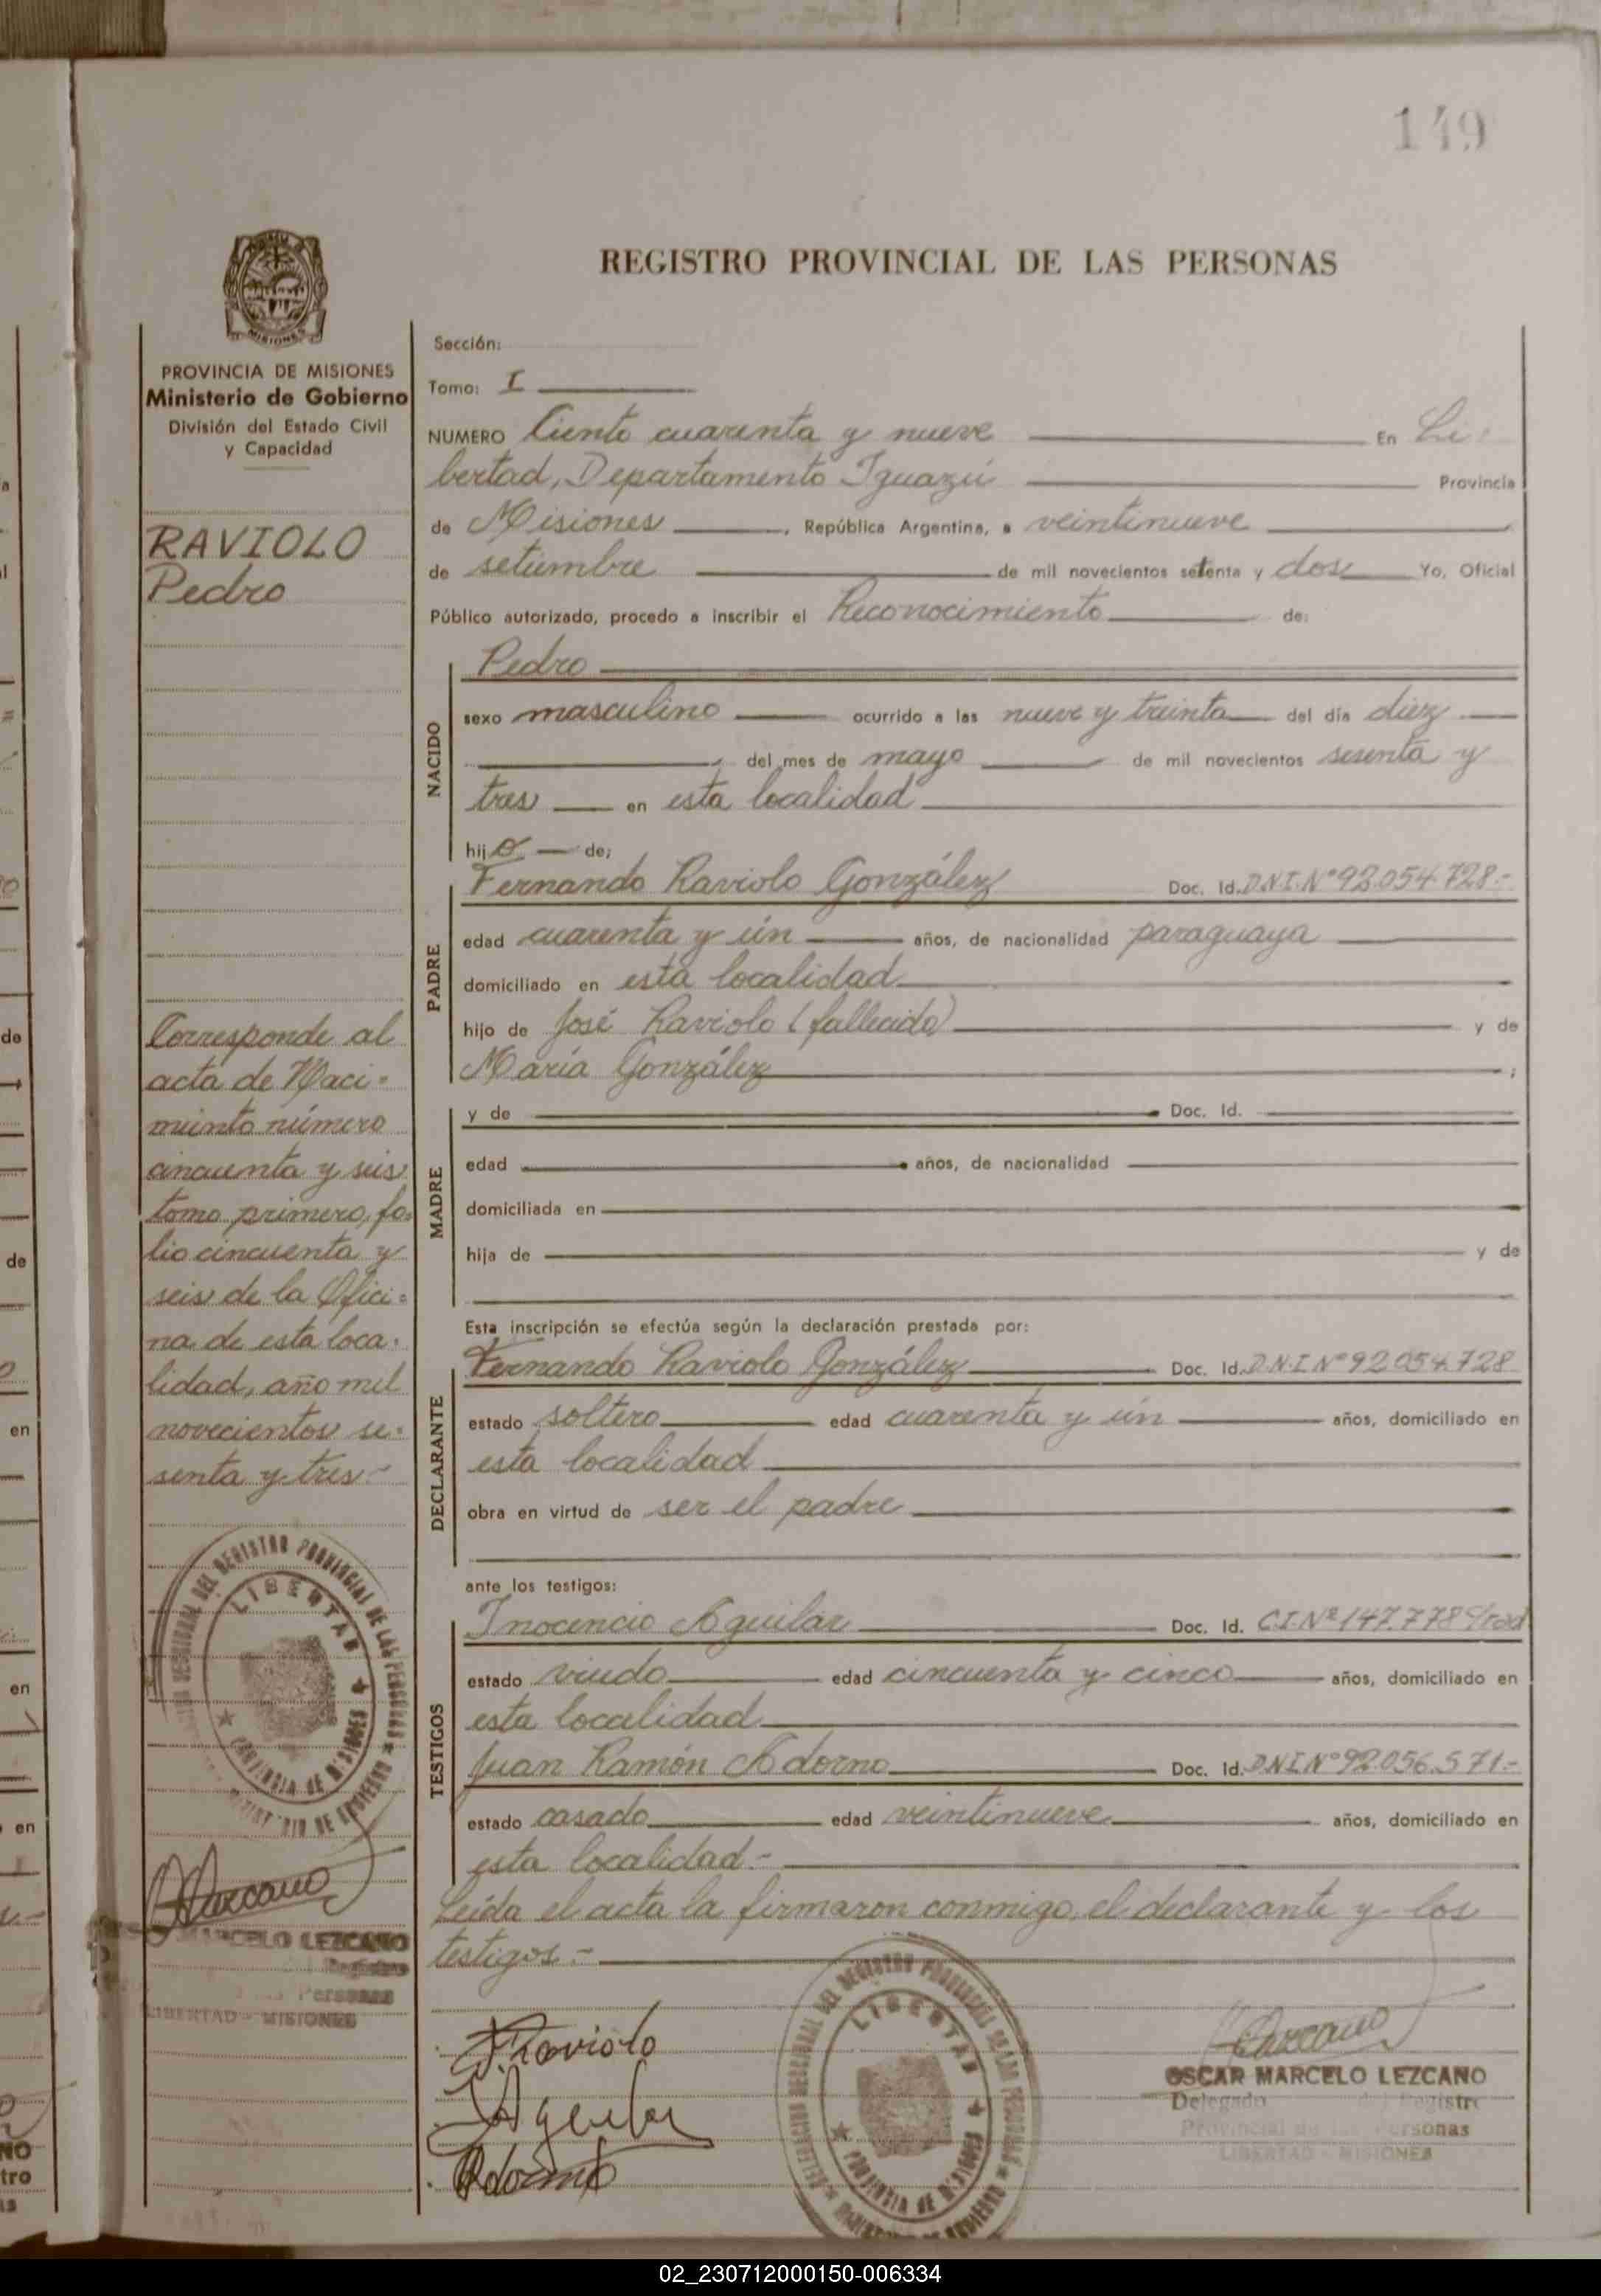 149
REGISTRO PROVINCIAL DE LAS PERSONAS
MISIONES
PROVINCIA DE MISIONES
Ministerio de Gobierno
División del Estado Civil
y Capacidad
RAVIOLO
Pedro
Corresponde al
acta de Naci=
miento número
cincuenta y seis
tomo primero, fo=
lio cincuenta y
seis de la Ofici=
na de esta loca=
lidad, año mil
novecientos se=
senta y tres.-
LIBERTAD
PROVINCIA DE MISIONES
MARCELO LEZCANO
Registro
Personas
LIBERTAD - MISIONES
Sección:
Tomo: I
NUMERO Ciento cuarenta y nueve En Li=
bertad, Departamento Iguazú Provincia
de Misiones, República Argentina, a veintinueve
de setiembre de mil novecientos setenta y dos Yo, Oficial
Público autorizado, procedo a inscribir el Reconocimiento de:
NACIDO
Pedro
sexo masculino ocurrido a las nueve y treinta del día diez
del mes de mayo de mil novecientos sesenta y
tres en esta localidad
hijo de;
PADRE
Fernando Raviolo González Doc. Id. D.N.I. Nº 92.054.728.-
edad cuarenta y ún años, de nacionalidad paraguaya
domiciliado en esta localidad
hijo de José Raviolo (fallecido) y de
María González ;
MADRE
y de Doc. Id.
edad años, de nacionalidad
domiciliada en
hija de y de
Esta inscripción se efectúa según la declaración prestada por:
DECLARANTE
Fernando Raviolo González Doc. Id. D.N.I Nº 92.054.728
estado soltero edad cuarenta y ún años, domiciliado en
esta localidad
obra en virtud de ser el padre
ante los testigos:
TESTIGOS
Inocencio Aguilar Doc. Id. C.I. Nº 147.778
estado viudo edad cincuenta y cinco años, domiciliado en
esta localidad
Juan Ramón Adorno Doc. Id. D.N.I. Nº 92.056.571.-
estado casado edad veintinueve años, domiciliado en
esta localidad.-
Leída el acta la firmaron conmigo, el declarante y los
testigos.-
Raviolo
Aguilar
Adorno
DELEGACION REGIONAL DEL REGISTRO PROVINCIAL DE LAS PERSONAS
LIBERTAD
PROVINCIA DE MISIONES
Lezcano
OSCAR MARCELO LEZCANO
Delegado del Registro
Provincial de las Personas
LIBERTAD - MISIONES
02_230712000150-006334